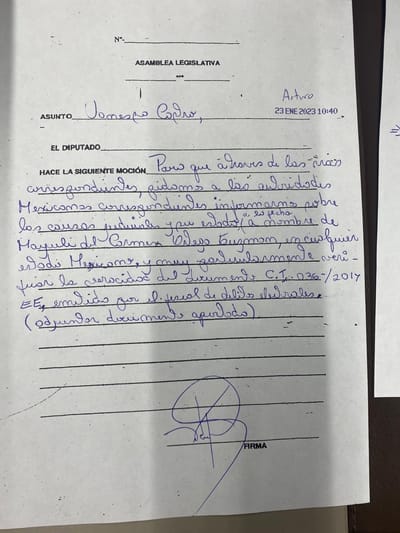 Nº-
ASAMBLEA LEGISLATIVA
***
Arturo
23 ENE 2023 10:40
ASUNTO
EL DIPUTADO
HACE LA SIGUIENTE MOCIÓN Para que através de las vías
correspondientes, pidamos a las autoridades
Mexicanas correspondientes informarnos sobre
las causas judiciales y su estado, a la fecha a nombre de
del Carmen Guzman, en cualquier
estado Mexicano, y muy particularmente veri-
ficar la veracidad del documento C.I.-036-/2017
EE, emitido por el fiscal de delito electorales.
(adjuntar documento aportado)
FIRMA